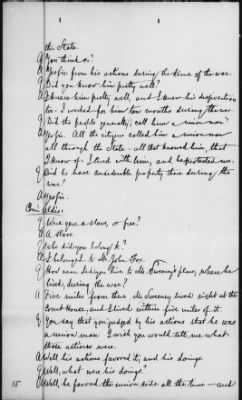 the State.
Q You think so?
A Yes sir from his actions during the time of the war.
Q Did you know him pretty well?
A I knew him pretty well, and I knew his disposition
too. I worked for him ten months during the war.
Q Did the people generally, call him a union man?
A Yes sir. All the citizens called him a union man
all through the State - all that knowed him, that
I know of. I lived with him, and he
Q Did he have considerable property there during the
war?
A Yes sir.
Q Were you a slave, or free?
A A slave.
Q Who did you belong to?
A I belonged to Dr. John Fox.
Q How near did you live to Mr. place, where he
lived, during the war?
A Five miles from there. Mr. lived right at the
Court House, and I lived within five miles of it
Q You say that you judged by his actions that he was
a union man. I wish you would tell me what
those actions were.
A Well his actions favored it, and his doings
Q Well, what were his doings?
A Well, he favored the union side all the time - and
15